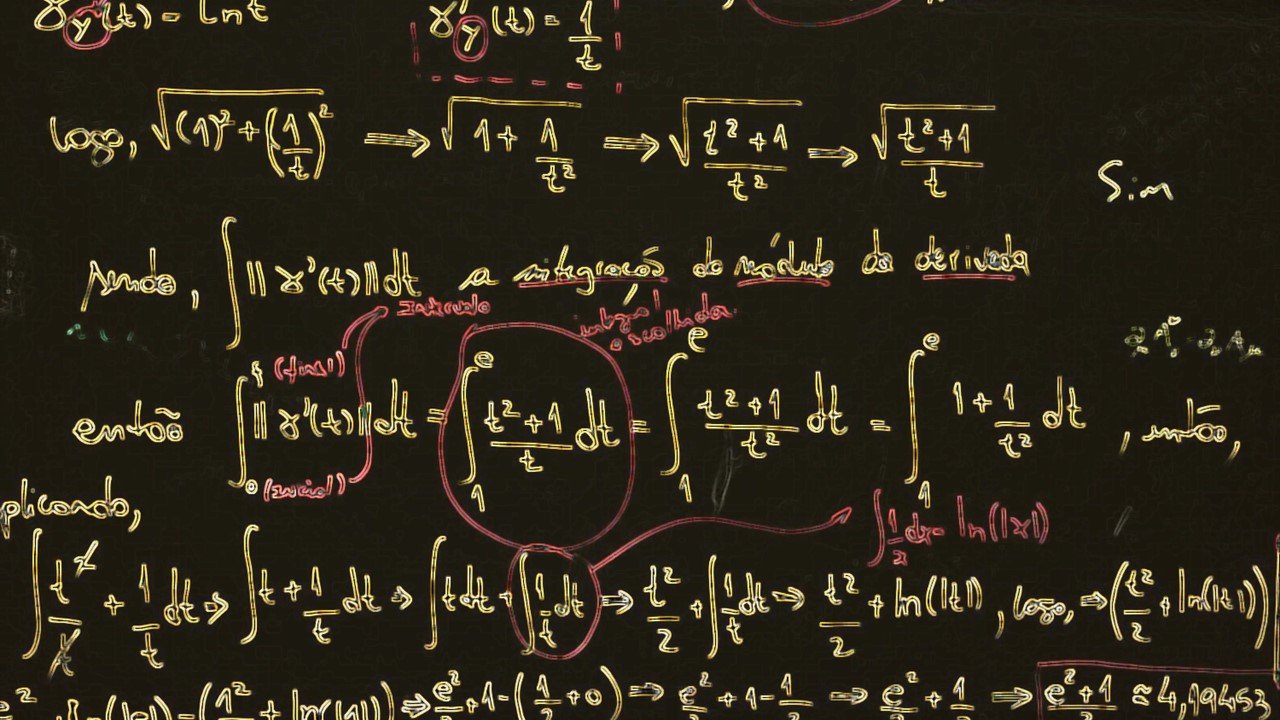 γy(t) = ln t γ'y(t) = 1/t
logo, √((1)² + (1/t)²) ⇒ √(1 + 1/t²) ⇒ √((t² + 1)/t²) ⇒ √(t² + 1)/t
Sim
sendo, ∫ ||γ'(t)|| dt a integração do módulo da derivada
Intervalo integral escolhida
então ∫₀ (inicial) ^f (final) ||γ'(t)|| dt = ∫₁^e (t² + 1)/t dt = ∫₁^e (t² + 1)/t² dt = ∫₁^e 1 + 1/t² dt , então,
plicando, ∫ 1/x dx = ln(|x|)
∫ t²/t + 1/t dt ⇒ ∫ t + 1/t dt ⇒ ∫ t dt + ∫ 1/t dt ⇒ t²/2 + ∫ 1/t dt ⇒ t²/2 + ln(|t|) , logo, ⇒ (t²/2 + ln(|t|))
e² + ln(|e|) - (1² + ln(|1|)) ⇒ e²/2 + 1 - (1/2 + 0) ⇒ e²/2 + 1 - 1/2 ⇒ e²/2 + 1/2 ⇒ e² + 1 ≈ 4,19453